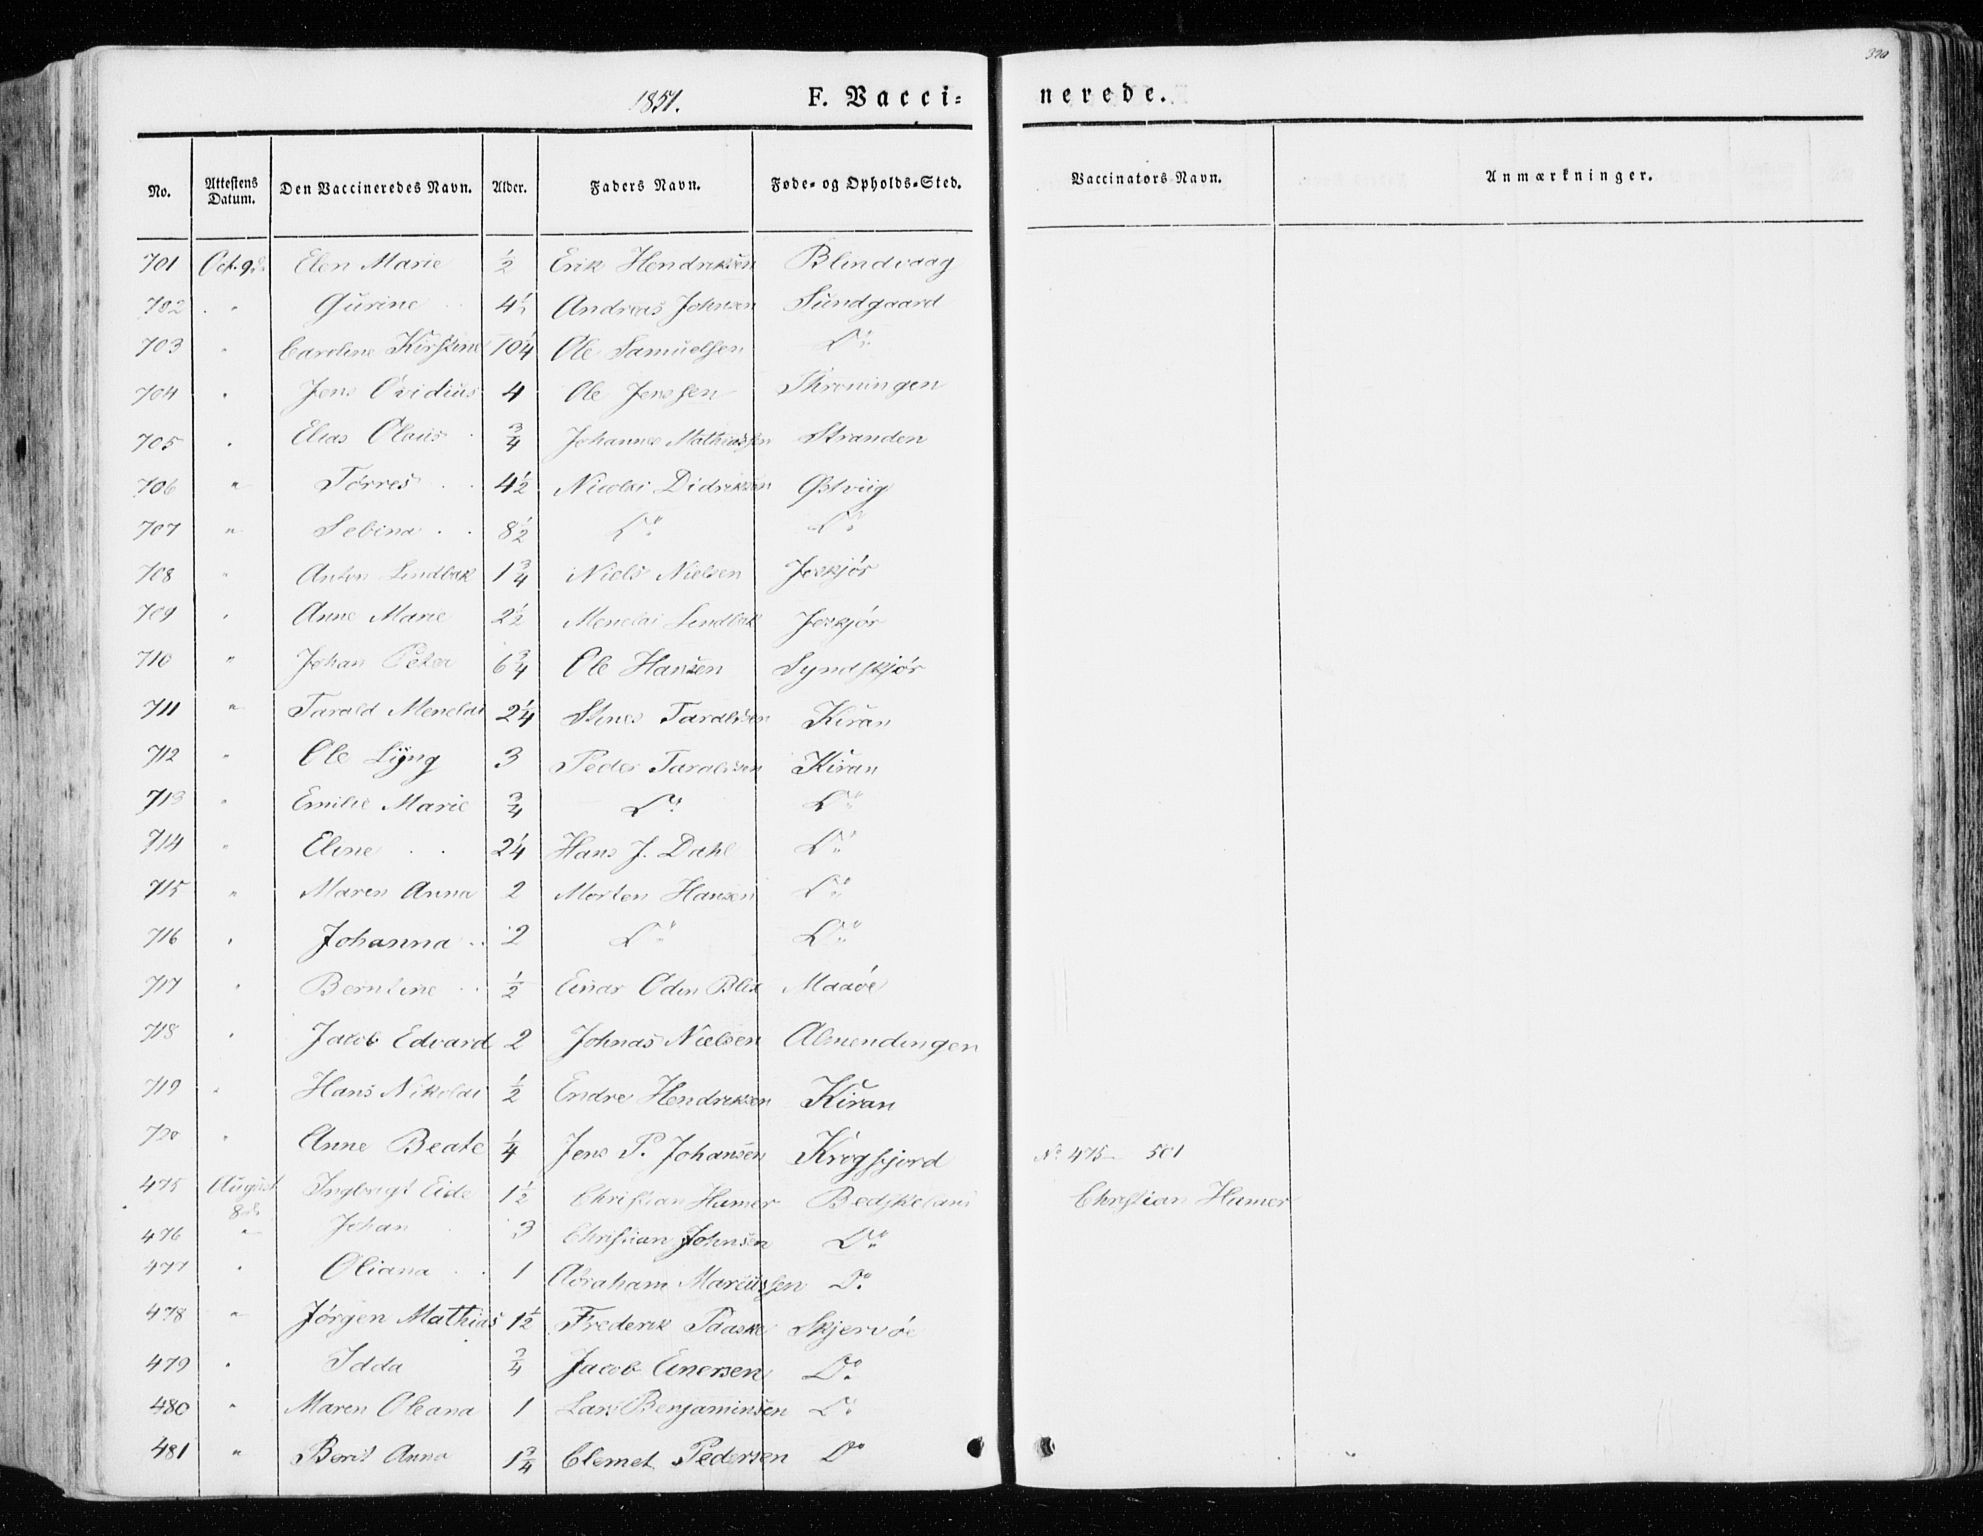 320
1851. F. Vacci= nerede.
No. Attestens Datum. Den Vaccineredes Navn. Alder. Faders Navn. Føde- og Opholds-Sted. Vaccinators Navn. Anmærkninger.
701 Oct. 9de Elen Marie ½ Erik Hendriksen Blindvaag
702 " Gurine 4½ Andreas Johnsen Sundgaard
703 " Caroline Kirstine 10¼ Ole Samuelsen Do
704 " Jens Ovidius 4 Ole Jenssen
705 " Elias Olaus ¾ Johannes Mathiassen Stranden
706 " Torres 4½ Nicolai Didriksen Østviig
707 " Sebina 8½ Do Do
708 " Anton Lindbak 1¾ Niels Nielsen Jeskjør
709 " Anne Marie 2½ Menelai Lindbak Jeskjør
710 " Johan Peter 6¾ Ole Hansen Syndskjør
711 " Tarald Menelai 2¼ Stines Taraldsen Kiran
712 " Ole Lÿng 3 Peder Taraldsen Kiran
713 " Emilie Marie ¾ Do Do
714 " Eline 2¼ Hans J. Dahl Do
715 " Maren Anna 2 Morten Hansen Do
716 " Johanna 2 Do Do
717 " Berntine ½ Einar Odin Blix Maaøe
718 " Jacob Edvard 2 Johnas Nielsen Almendingen
719 " Hans Nikolai ½ Endre Hendriksen Kiran
720 " Anne Beate ¼ Jens P. Johansen Krogfjord No 475– 501
475 August 8de Ingbrigt Eide 1½ Christian Hamer Christian Hamer
476 " Johan 3 Christian Johnsen Do
477 " Oliana 1 Abraham Marcussen Do
478 " Jørgen Mathias 1½ Frederik Paaske Skjervøe
479 " Idda ¾ Jacob Einersen Do
480 " Maren Oleana 1 Lars Benjaminsen Do
481 " Berit Anna 1¾ Clemet Pedersen Do